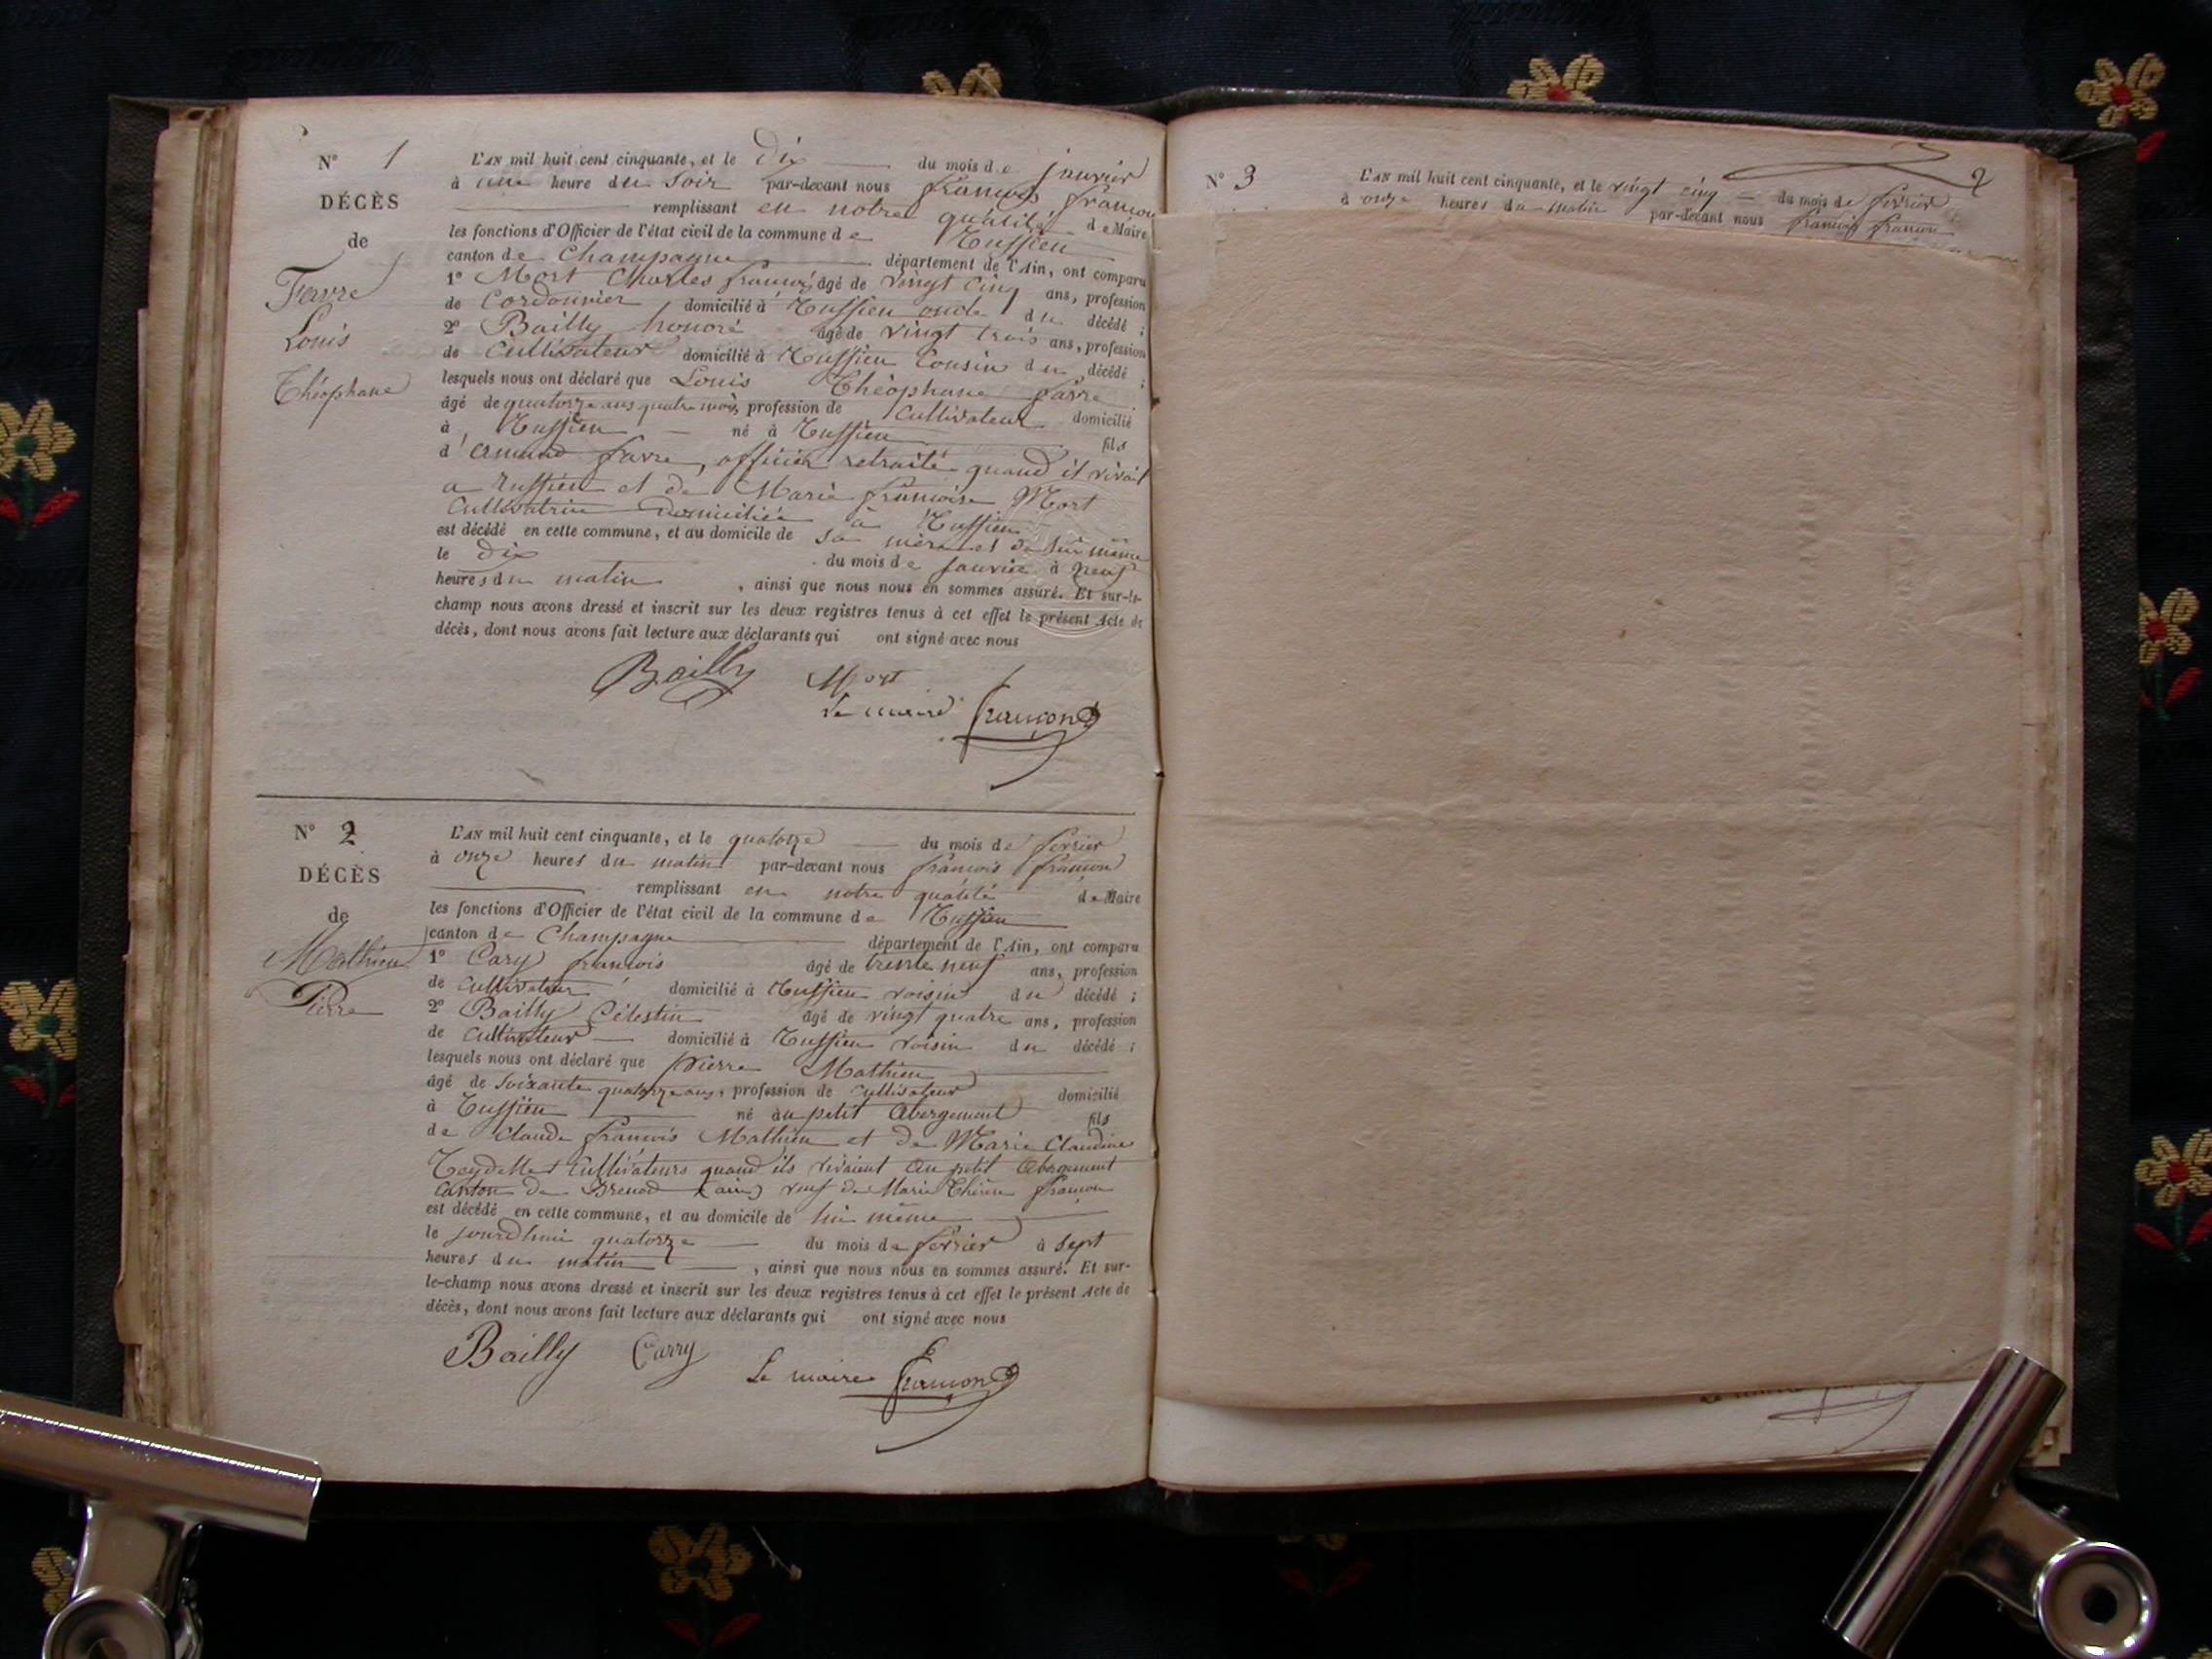 N° 1
DÉCÈS
de
Favre
Louis
Théophane
L'AN mil huit cent cinquante, et le dix du mois de janvier
à une heure du soir par-devant nous françois françon
remplissant en notre qualité de Maire
les fonctions d'Officier de l'état civil de la commune de
canton de Champagne département de l'Ain, ont comparu
1° Mort Charles françois, âgé de vingt cinq ans, profession
de Cordonnier domicilié à oncle du décédé ;
2° Bailly honoré âgé de vingt trois ans, profession
de Cultivateur domicilié à Cousin du décédé ;
lesquels nous ont déclaré que Louis Théophane favre
âgé de quatorze ans quatre mois, profession de Cultivateur domicilié
à né à fils
d' armand favre, officier retraité quand il vivait
a et de Marie françoise Mort
Cultivatrice domiciliée à
est décédé en cette commune, et au domicile de sa mère et de lui même
le dix du mois de janvier à neuf
heures du matin, ainsi que nous nous en sommes assuré. Et sur-le-
champ nous avons dressé et inscrit sur les deux registres tenus à cet effet le présent Acte de
décès, dont nous avons fait lecture aux déclarants qui ont signé avec nous
Bailly Mort
Le maire françon
N° 2
DÉCÈS
de
Mathieu
Pierre
L'AN mil huit cent cinquante, et le quatorze du mois de fevrier
à onze heures du matin par-devant nous francois françon
remplissant en notre qualité de Maire
les fonctions d'Officier de l'état civil de la commune de
canton de Champagne département de l'Ain, ont comparu
1° Cary francois âgé de trente neuf ans, profession
de Cultivateur domicilié à voisin du décédé ;
2° Bailly Célestin âgé de vingt quatre ans, profession
de cultivateur domicilié à voisin du décédé ;
lesquels nous ont déclaré que Pierre Mathieu
âgé de soixante quatorze ans, profession de cultivateur domicilié
à né au petit Abergement fils
de Claude francois Mathieu et de Marie Claudine
Cultivateurs quand ils vivaient au petit Abergement
Canton de Brenod (ain) veuf de Marie françon
est décédé en cette commune, et au domicile de lui même
le jourdhui quatorze du mois de fevrier à sept
heures du matin, ainsi que nous nous en sommes assuré. Et sur-
le-champ nous avons dressé et inscrit sur les deux registres tenus à cet effet le présent Acte de
décès, dont nous avons fait lecture aux déclarants qui ont signé avec nous
Bailly Carry
Le maire françon
2
N° 3
L'AN mil huit cent cinquante, et le vingt cinq du mois de fevrier
à onze heures du matin par-devant nous françois françon